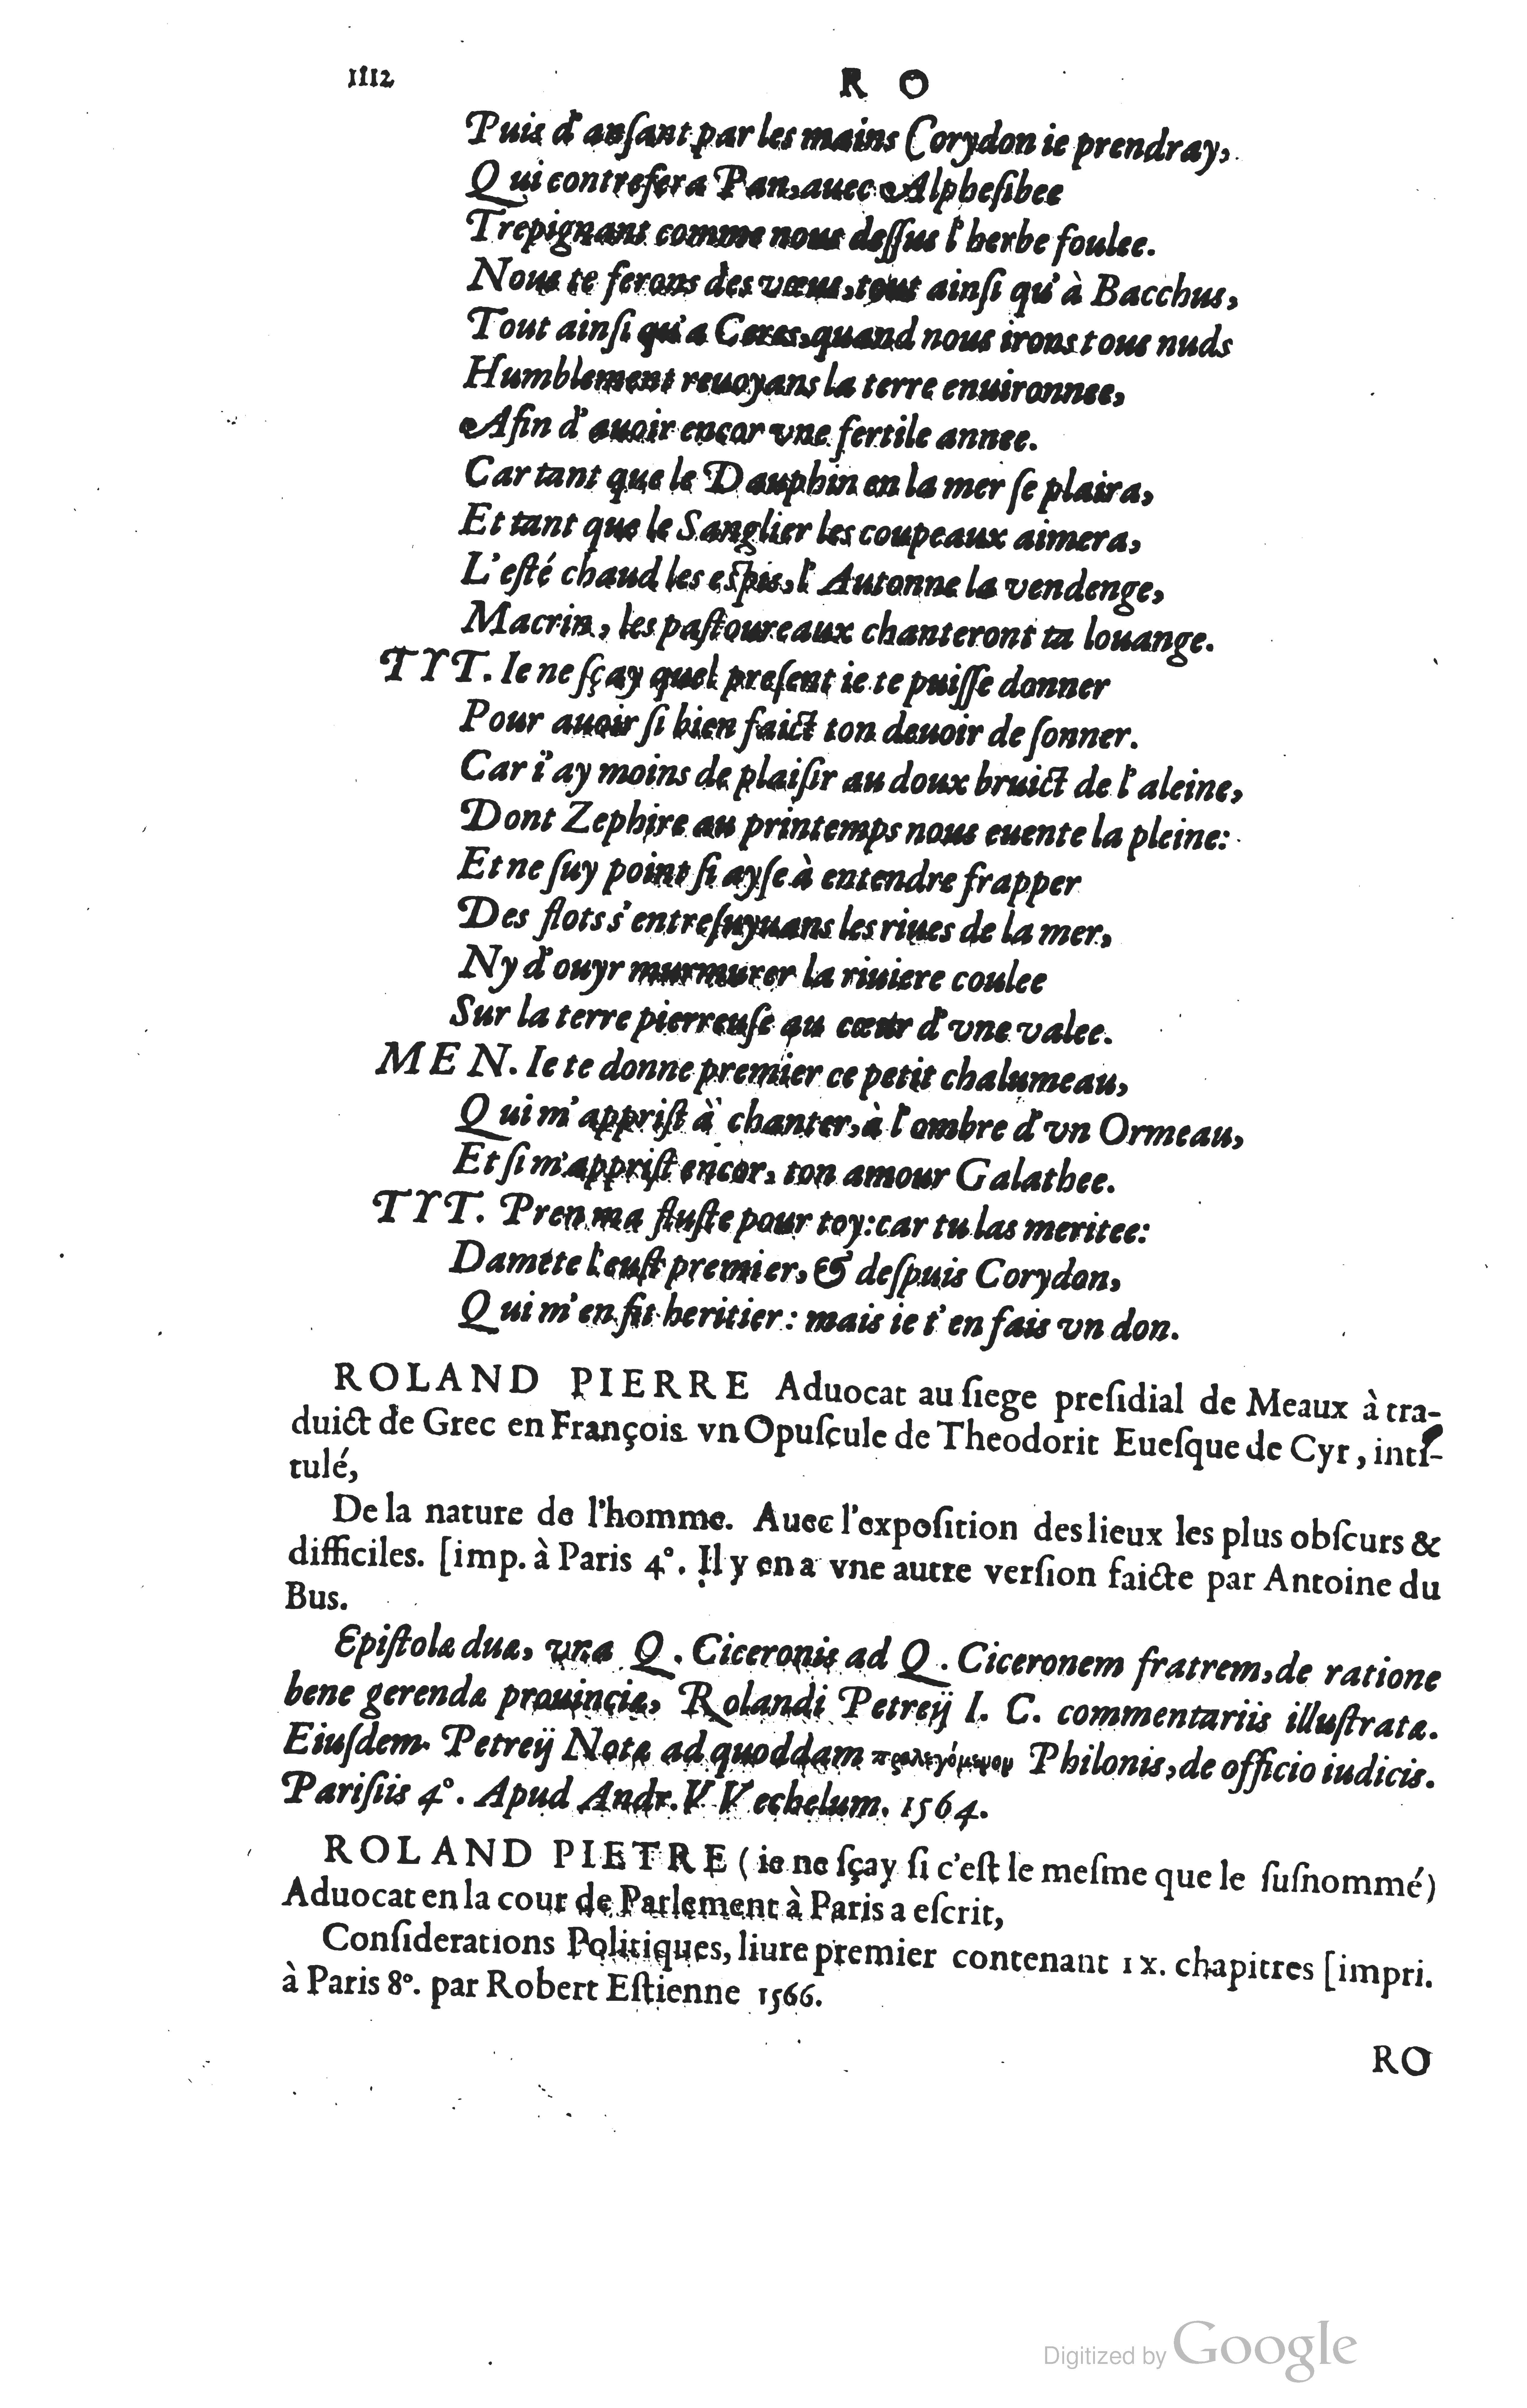 1112
R O
Puis d'ansant par les mains Corydon ie prendray,
Qui contrefera Pan, auec Alphesibee
Trepignant comme nous deſſus l'herbe foulee.
Nous te ferons des vœus, tout ainſi qu'à Bacchus,
Tout ainſi qu'a Ceres, quand nous irons tous nuds
Humblement reuoyans la terre enuironnee,
Afin d'auoir encor vne fertile annee.
Car tant que le Dauphin en la mer ſe plaira,
Et tant que le Sanglier les coupeaux aimera,
L'eſté chaud les eſpis, l'Autonne la vendenge,
Macrin, les paſtoureaux chanteront ta louange.
TYT. Ie ne ſçay quel preſent ie te puiſſe donner
Pour auoir ſi bien faict ton deuoir de ſonner.
Car i'ay moins de plaiſir au doux bruict de l'aleine,
Dont Zephire au printemps nous euente la pleine:
Et ne ſuy point ſi ayſe à entendre frapper
Des flots s'entreſuyuans les riues de la mer,
Ny d'ouyr murmurer la riuiere coulee
Sur la terre pierreuſe au cœur d'vne valee.
MEN. Ie te donne premier ce petit chalumeau,
Qui m'appriſt à chanter, à l'ombre d'vn Ormeau,
Et ſi m'appriſt encor, ton amour Galathee.
TYT. Pren ma fluſte pour toy: car tu las meritee:
Damete l'euſt premier, & deſpuis Corydon,
Qui m'en fit heritier: mais ie t'en fais vn don.
ROLAND PIERRE Aduocat au ſiege preſidial de Meaux à tra-
duict de Grec en François vn Opuſcule de Theodorit Eueſque de Cyr, inti-
tulé,
De la nature de l'homme. Auec l'expoſition des lieux les plus obſcurs &
difficiles. [imp. à Paris 4°. Il y en a vne autre verſion faicte par Antoine du
Bus.
Epiſtolæ duæ, vna Q. Ciceronis ad Q. Ciceronem fratrem, de ratione
bene gerendæ prouinciæ, Rolandi Petreij I. C. commentariis illuſtratæ.
Eiuſdem Petreij Notæ ad quoddam προλεγόμενον Philonis, de officio iudicis.
Pariſiis 4°. Apud Andr. VVechelum. 1564.
ROLAND PIETRE (ie ne ſçay ſi c'eſt le meſme que le ſuſnommé)
Aduocat en la cour de Parlement à Paris a eſcrit,
Conſiderations Politiques, liure premier contenant IX. chapitres [impri.
à Paris 8°. par Robert Eſtienne 1566.
RO
Digitized by Google